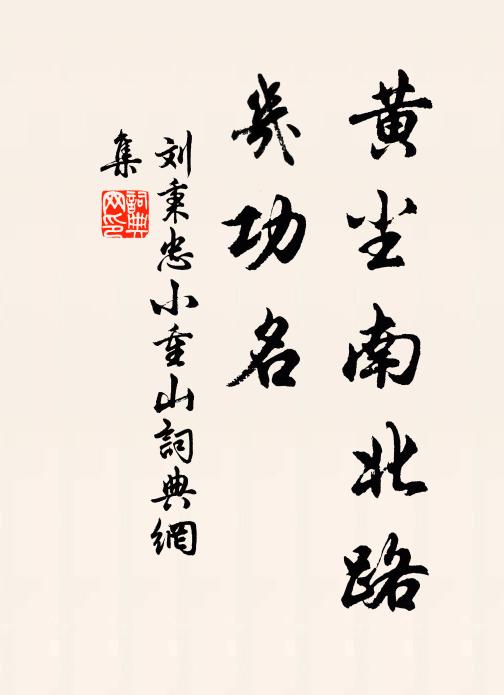 黄尘南北路
几功名
刘秉忠小重山詞典網
集
詞典
网印